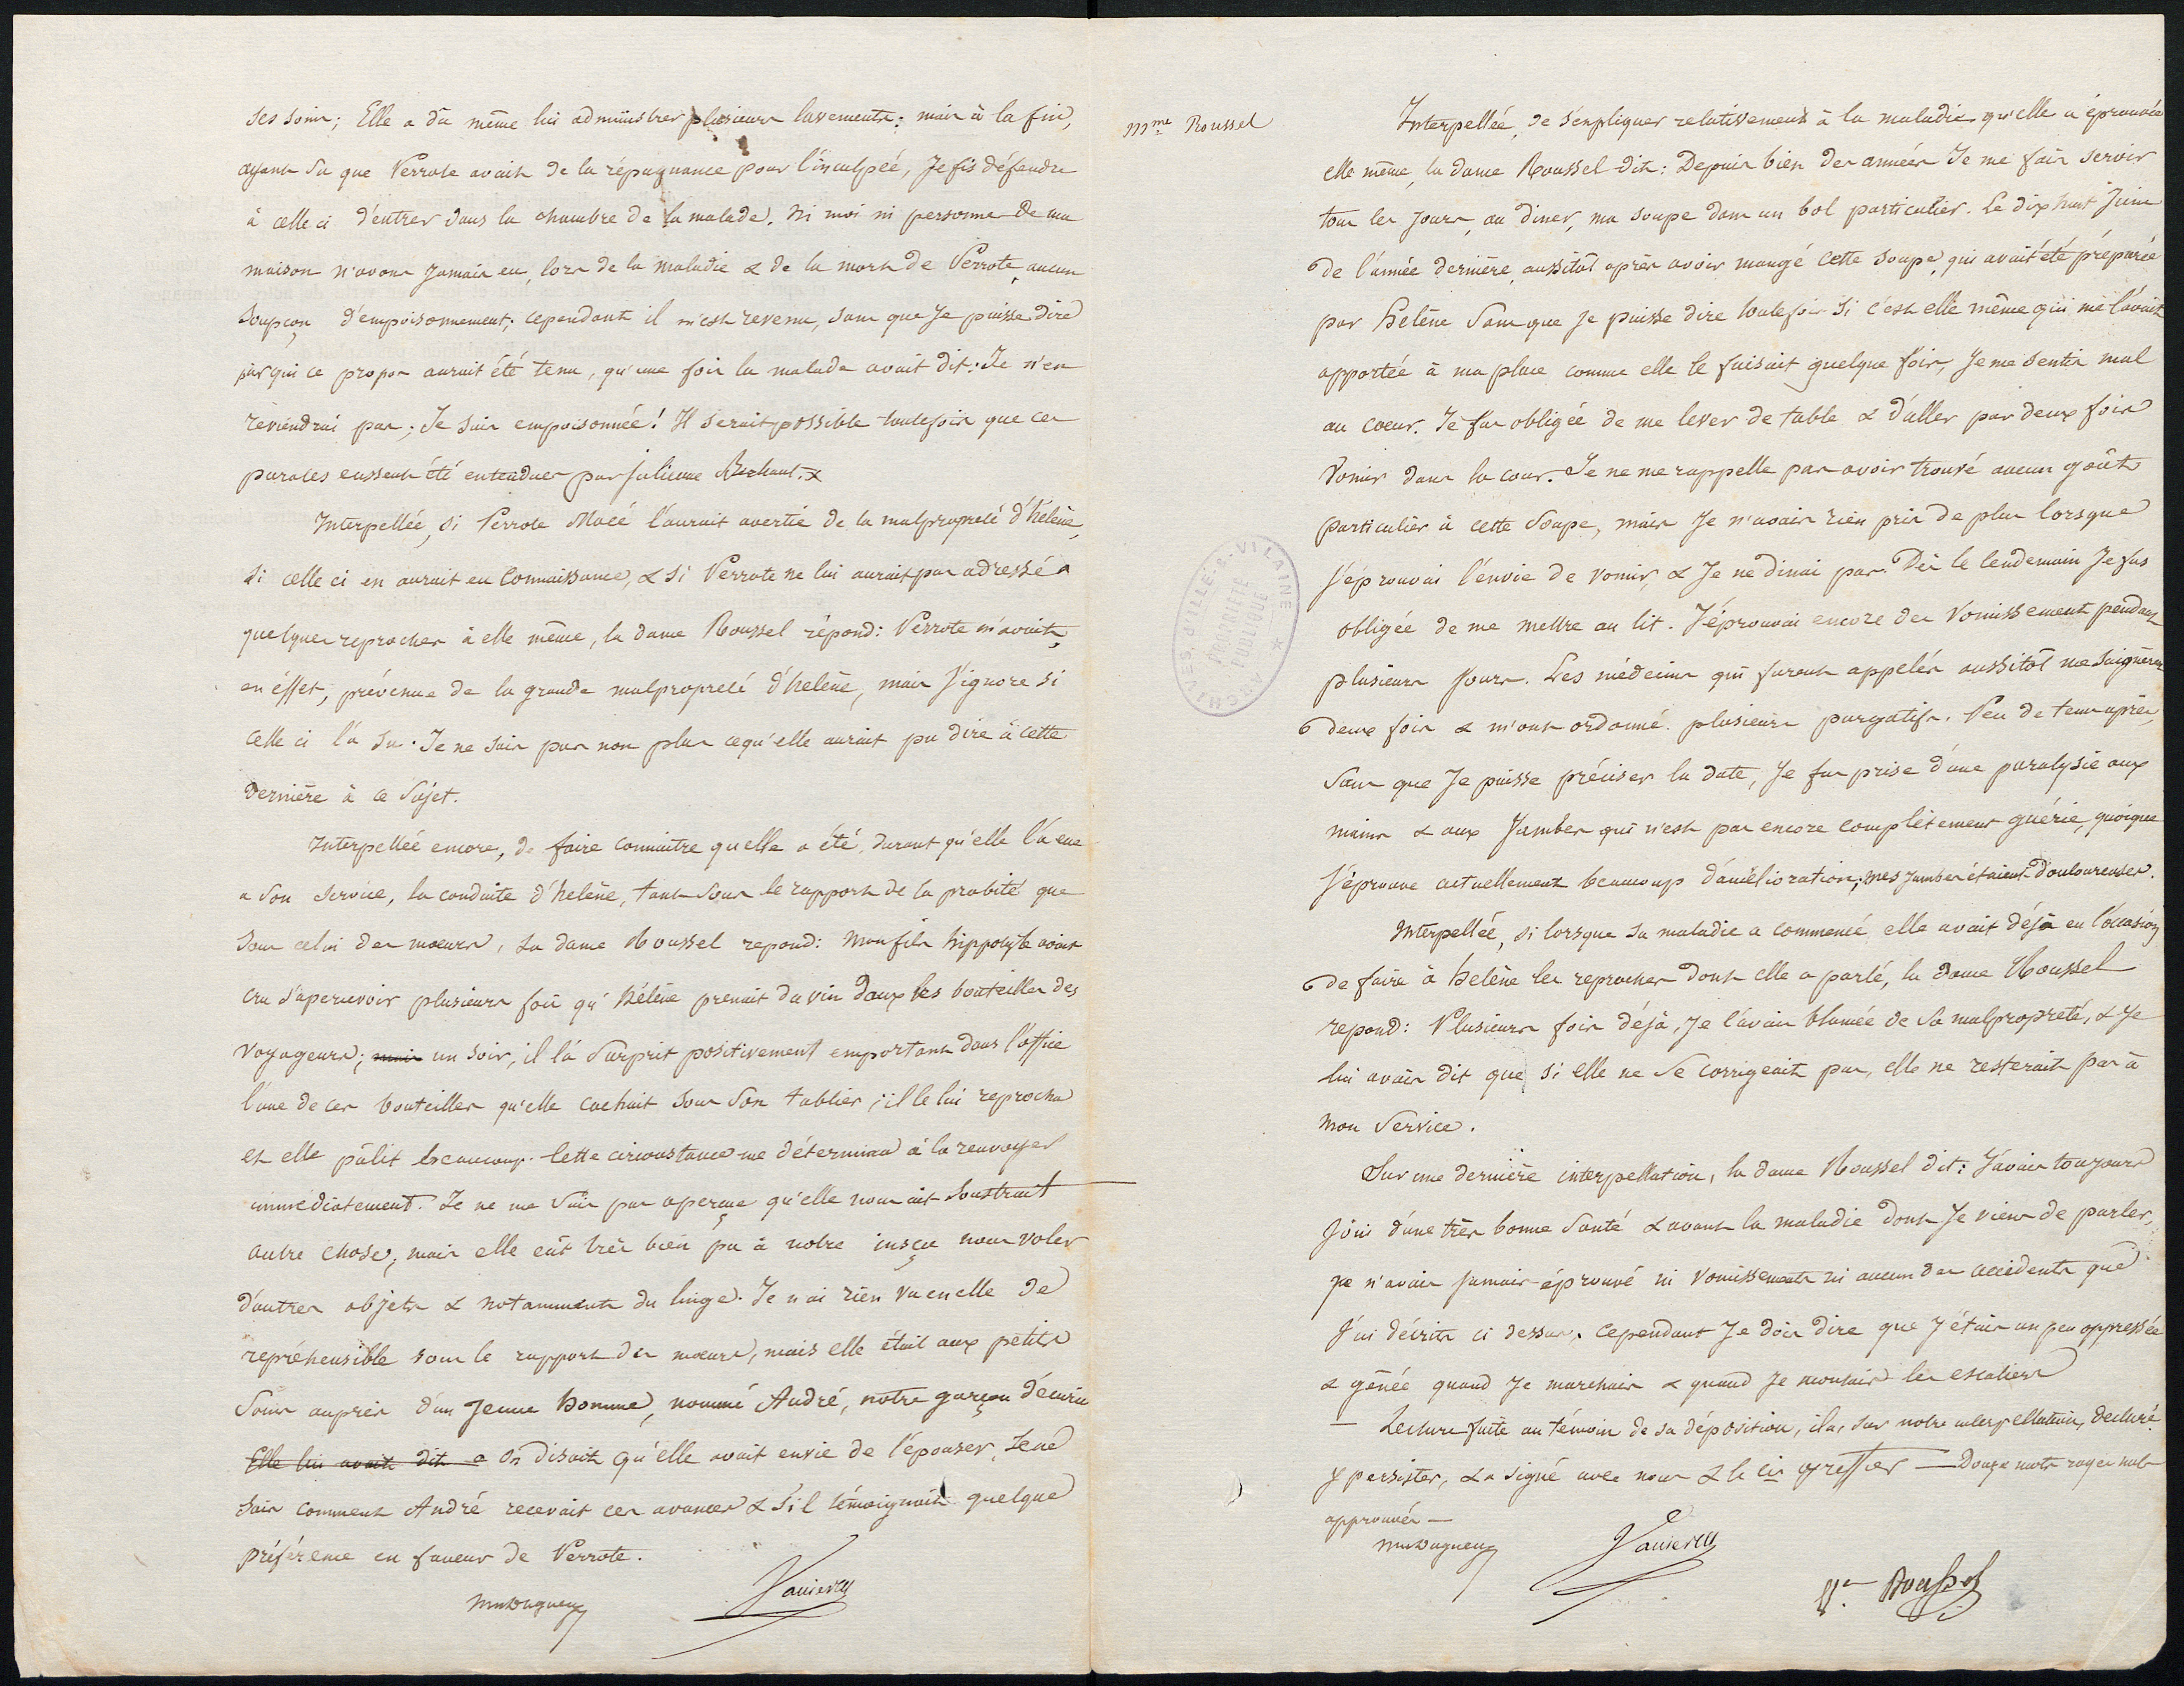 ses soins; Elle a dû même lui administrer plusieurs lavements: mais à la fin,
ayant su que Perrote avait de la répugnance pour l'inculpée, Je fis défendre
à celle ci d'entrer dans la chambre de la malade. Ni moi ni personne de ma
maison n'avons jamais eu, lors de la maladie & de la mort de Perrote, aucun
soupçon d'empoisonnement; cependant il m'est revenu, sans que Je puisse dire
par qui ce propos aurait été tenu, qu'une fois la malade avait dit: Je n'en
reviendrai pas; Je suis empoisonnée! Il serait possible toutefois que ces
paroles eussent été entendues par Julienne
Interpellée, si Perrote Macé l'aurait avertie de la malpropreté d'hélène,
si celle ci en aurait eu connaissance, & si Perrote ne lui aurait pas adressé
quelques reproches à elle même, la dame Roussel répond: Perrote m'avait,
en éffet, prévenue de la grande malpropreté d'hélène, mais J'ignore si
celle ci l'a su. Je ne sais pas non plus ce qu'elle aurait pu dire à cette
dernière à ce sujet.
Interpellée encore, de faire connaître quelle a été, durant qu'elle l'a eue
a son service, la conduite d'hélène, tant sous le rapport de la probité que
sous celui des moeurs, La dame Roussel repond: Mon fils hippolyte avait
cru s'apercevoir plusieurs fois qu'hélène prenait du vin dans les bouteilles des
voyageurs; mais un soir, il l'a surprit positivement emportant dans l'office
l'une de ces bouteilles qu'elle cachait sous son tablier; il le lui reprocha
et elle pâlit beaucoup. Cette circonstance me détermina à la renvoyer
immédiatement. Je ne me suis pas aperçue qu'elle nous ait soustrait
autre chose, mais elle eût très bien pu à notre insçu nous voler
d'autres objets & notamment du linge. Je n'ai rien vu en elle de
repréhensible sous le rapport des moeurs, mais elle était aux petits
soins auprès d'un Jeune homme, nommé André, notre garçon d'écurie
Elle lui avait dit a On disait qu'elle avait envie de l'épouser, Je ne
sais comment André recevait ces avances & s'il témoignait quelque
préférence en faveur de Perrote.
Vannier
Mme Roussel
Interpellée, de s'expliquer relativement à la maladie qu'elle a éprouvée
elle même, la dame Roussel dit: Depuis bien des années Je me fais servir
tous les Jours, au diner, ma soupe dans un bol particulier. Le dix huit Juin
de l'année dernière, aussitôt après avoir mangé cette soupe, qui avait été préparée
par hélène sans que Je puisse dire toutefois si c'est elle même qui me l'avait
apportée à ma place comme elle le faisait quelque fois, Je me sentis mal
au coeur. Je fus obligée de me lever de table & d'aller par deux fois
vomir dans la cour. Je ne me rappelle pas avoir trouvé aucun goût
particulier à cette soupe, mais Je n'avais rien pris de plus lorsque
J'éprouvai l'envie de vomir, & Je ne dinai pas. Dès le lendemain Je fus
obligée de me mettre au lit. J'éprouvai encore des vomissements pendant
plusieurs Jours. Les médecins qui furent appelés aussitôt me saignèrent
deux fois & m'ont ordonné plusieurs purgatifs. Peu de tems après,
sans que Je puisse préciser la date, Je fus prise d'une paralysie aux
mains & aux Jambes qui n'est pas encore complètement guérie, quoique
J'éprouve actuellement beaucoup d'amélioration; mes Jambes étaient douloureuses.
Interpellée, si lorsque sa maladie a commencé elle avait déjà eu l'occasion
de faire à hélène les reproches dont elle a parlé, la dame Roussel
repond: Plusieurs fois déjà, Je l'avais blamée de sa malpropreté, & Je
lui avais dit que si elle ne se corrigeait pas, elle ne resterait pas à
mon service.
Sur une dernière interpellation, la dame Roussel dit: J'avais toujours
Joui d'une très bonne santé & avant la maladie dont Je viens de parler,
Je n'avais Jamais éprouvé ni vomissements ni aucun des accidents que
J'ai décrits ci dessus. Cependant Je dois dire que J'étais un peu oppressée
& gênée quand Je marchais & quand Je montais les escaliers
— Lecture faite au témoin de sa déposition, il a, sur notre interpellation, declaré
y persister, & a signé avec nous & le cis greffier — Douze mots rayés nuls
approuvés —
Vannier
Ve Roussel
ARCHIVES D'ILLE-&-VILAINE *
PROPRIÉTÉ
PUBLIQUE